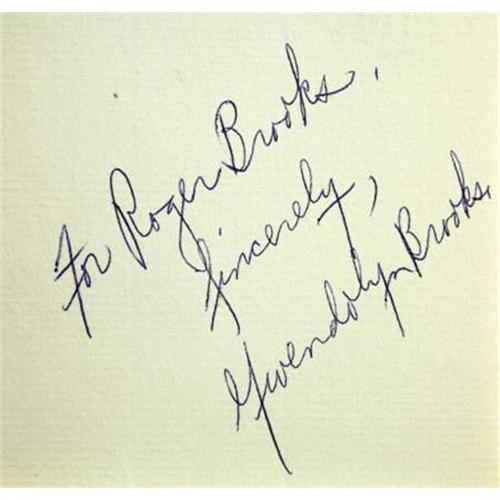 For Roger Brooks.
Sincerely,
Gwendolyn Brooks.